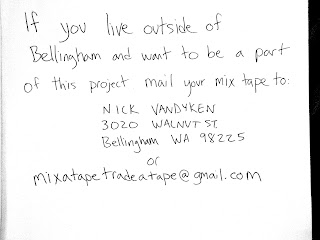 If you live outside of
Bellingham and want to be a part
of this project mail your mix tape to:
NICK VANDYKEN
3020 WALNUT ST.
Bellingham WA 98225
or
mixatapetradeatape@gmail.com